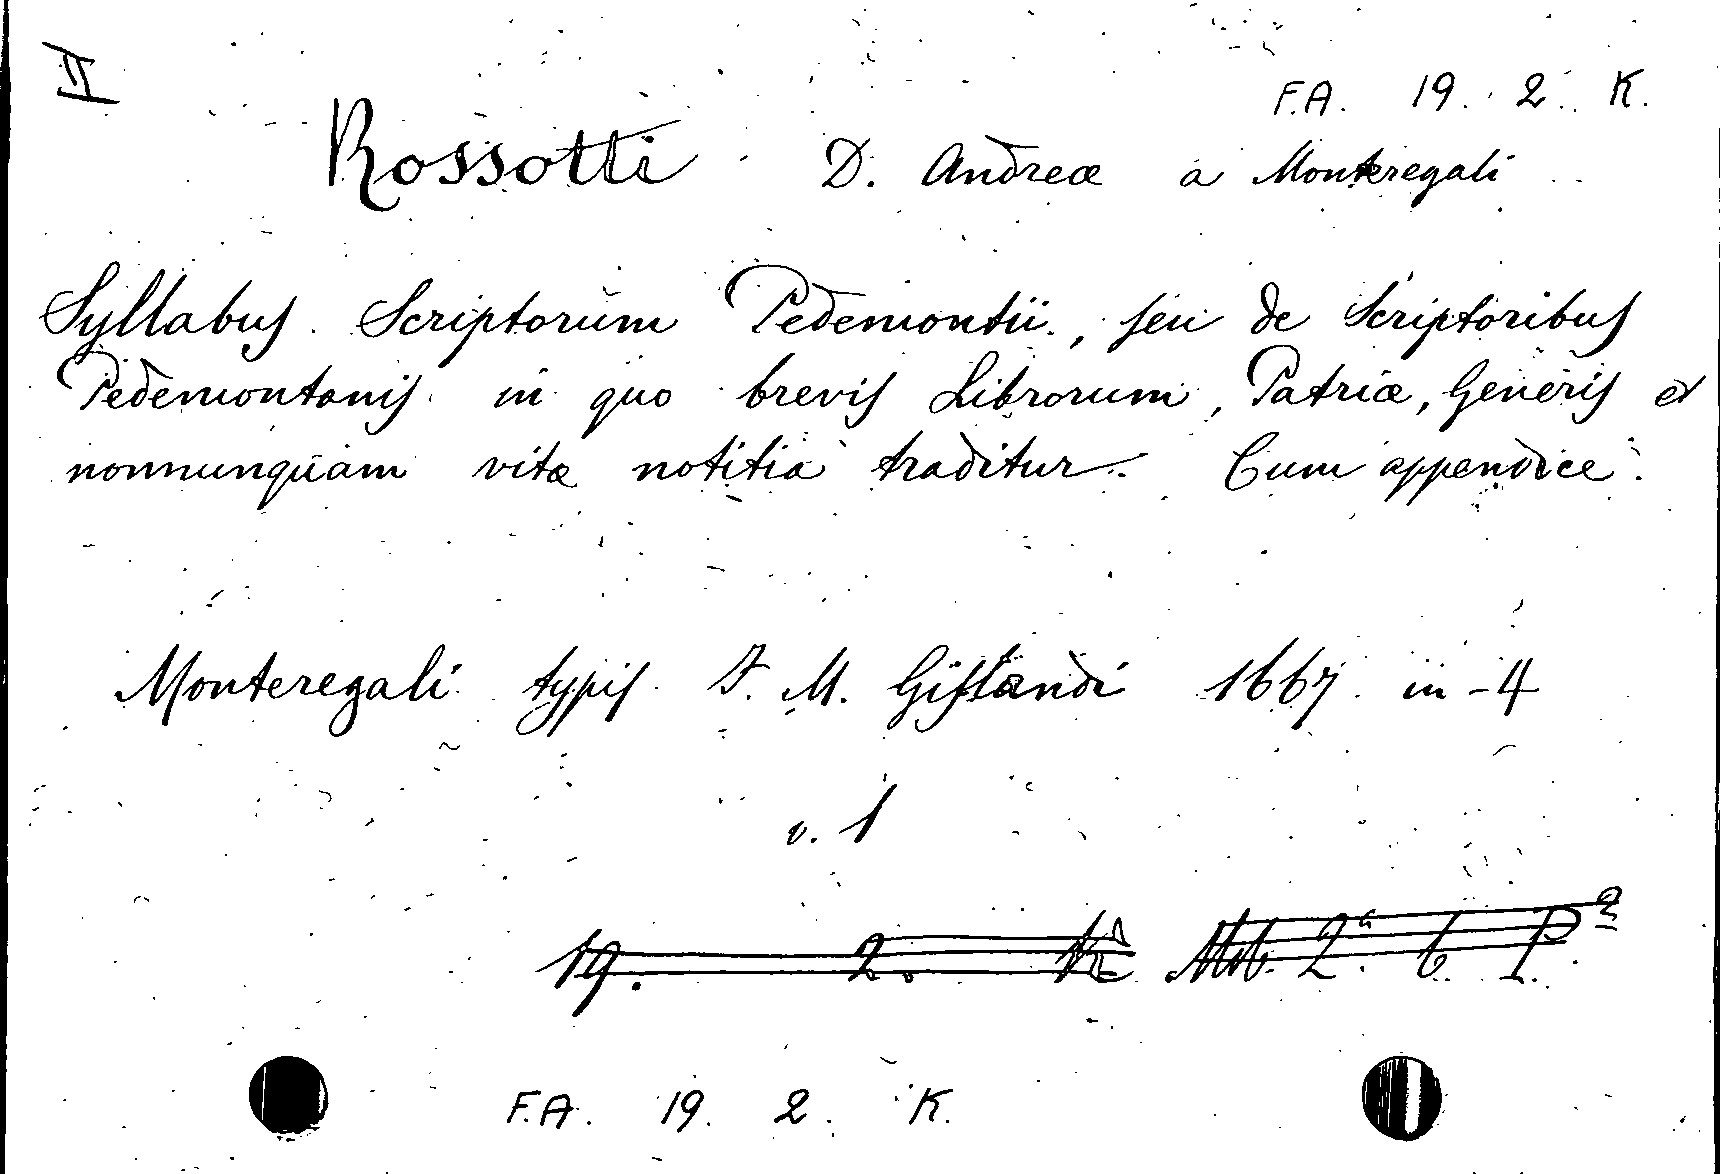 II
F.A. 19. 2. K.
Rossotti D. Andreæ a Monteregali
Syllabus Scriptorum Pedemontii, seu de Scriptoribus
Pedemontanis in quo brevis Librorum, Patriæ, Generis et
nonnunquam vitæ notitia traditur. Cum appendice.
Monteregali typis F. M. Gislandi 1667 in-4
v. 1
19. 2.
F.A. 19. 2. K.